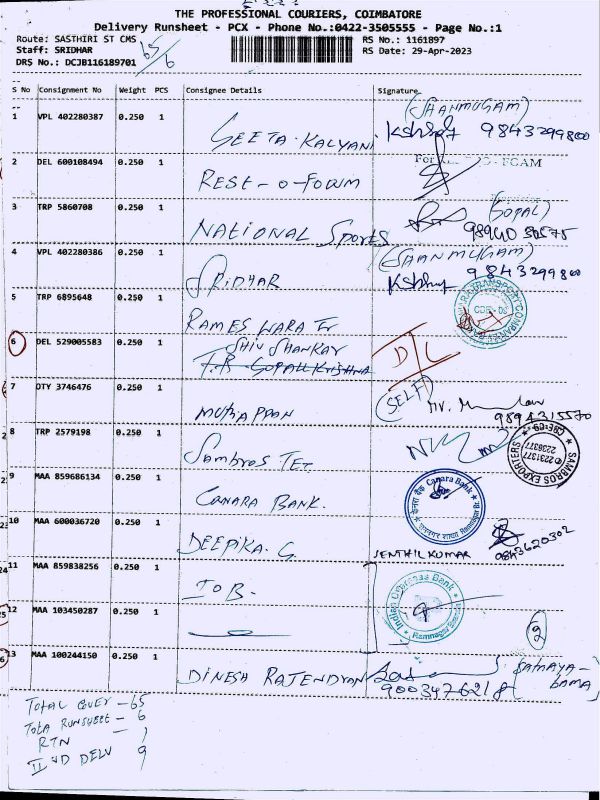 THE PROFESSIONAL COURIERS, COIMBATORE
Delivery Runsheet - PCX - Phone No.:0422-3505555 - Page No.:1
Route: SASTHIRI ST CMS
RS No.: 1161897
Staff: SRIDHAR
RS Date: 29-Apr-2023
DRS No.: DCJB116189701
65/6
S No Consignment No Weight PCS Consignee Details Signature
1 VPL 402280387 0.250 1 GEETA-KALYANI (SHANMUGAM) 9843299800
2 DEL 600108494 0.250 1 REST-O-FOAM For
3 TRP 5860708 0.250 1 NATIONAL Sports (GOPAL)
4 VPL 402280386 0.250 1 SRIDHAR (SHANMUGAM) 9843299800
5 TRP 6895648 0.250 1 RAMESWARA Tr
6 DEL 529005583 0.250 1 SHIV SHANKAR D/L
7 DTY 3746476 0.250 1 MUTHAPPAN (SELF) 9894315570
8 TRP 2579198 0.250 1 Sambros TET SAMBROS EXPORTERS CBE-09 2231377 2236377
9 MAA 859686134 0.250 1 CANARA BANK. केनरा बैंक Canara Bank
10 MAA 600036720 0.250 1 DEEPIKA. G. SENTHIL KUMAR 9843620302
11 MAA 859838256 0.250 1 IOB. Indian Overseas Bank Ramnagar
12 MAA 103450287 0.250 1 2
13 MAA 100244150 0.250 1 DINESH RAJENDRAN 9003476218 (SATHAYA-BAMA)
TOTAL COVER - 65
TOTA RUNSHEET - 6
RTN - 1
II ND DELV 9